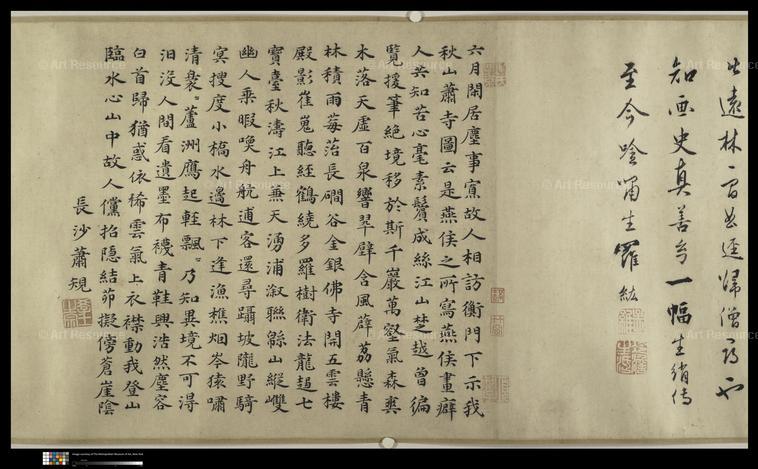 遠林
歸僧
知画史真善
一幅生綃傳
至今吟嘯生羅紘
六月閒居塵事寡故人相訪衡門下示我
秋山蕭寺圖云是燕侯之所寫燕侯畫癖
人共知苦心毫素鬢成絲江山楚越曾徧
覽援筆絕境移於斯千巖萬壑氣森爽
木落天虛百泉響翠壁含風薜荔懸青
林積雨莓苔長磵谷金銀佛寺開五雲樓
殿影崔嵬聽經鶴繞多羅樹衛法龍趨七
寶臺秋濤江上兼天湧浦漵聯緜山縱雙
幽人乘暇喚舟航逋客還尋躡坡隴野騎
冥搜度小橋水邊林下逢漁樵烟岑猿嘯
清〻蘆洲鴈起輕飄〻乃知異境不可得
汨沒人間看遺墨布襪青鞋興浩然塵容
白首歸猶惑依稀雲氣上衣襟動我登山
臨水心山中故人儻招隱結茆擬傍蒼崖陰
長沙蕭規
© Art Resource